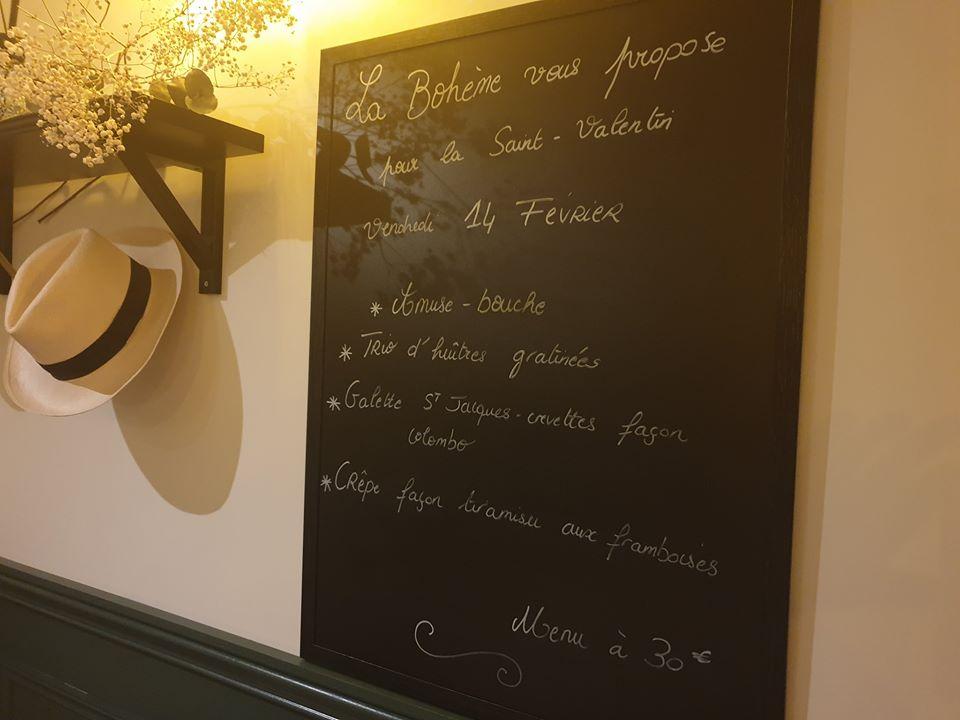 La Bohème vous propose
pour la Saint-Valentin
Vendredi 14 FÉVRIER
* Amuse-bouche
* Trio d'huîtres gratinées
* Galette St Jacques-crevettes façon
colombo
* Crêpe façon tiramisu aux framboises
Menu à 30 €